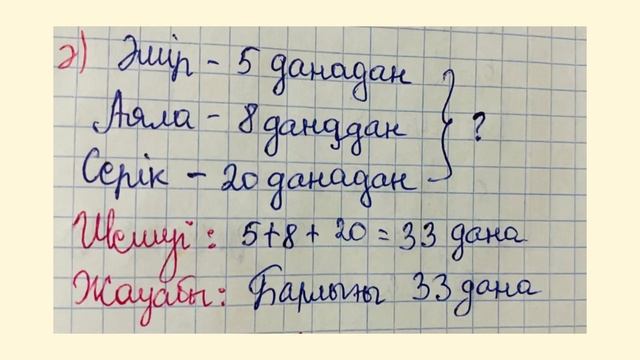 ә) Әмір - 5 данадан
Аяла - 8 данадан
Серік - 20 данадан } ?
Шешуі: 5+8+20=33 дана
Жауабы: Барлығы 33 дана